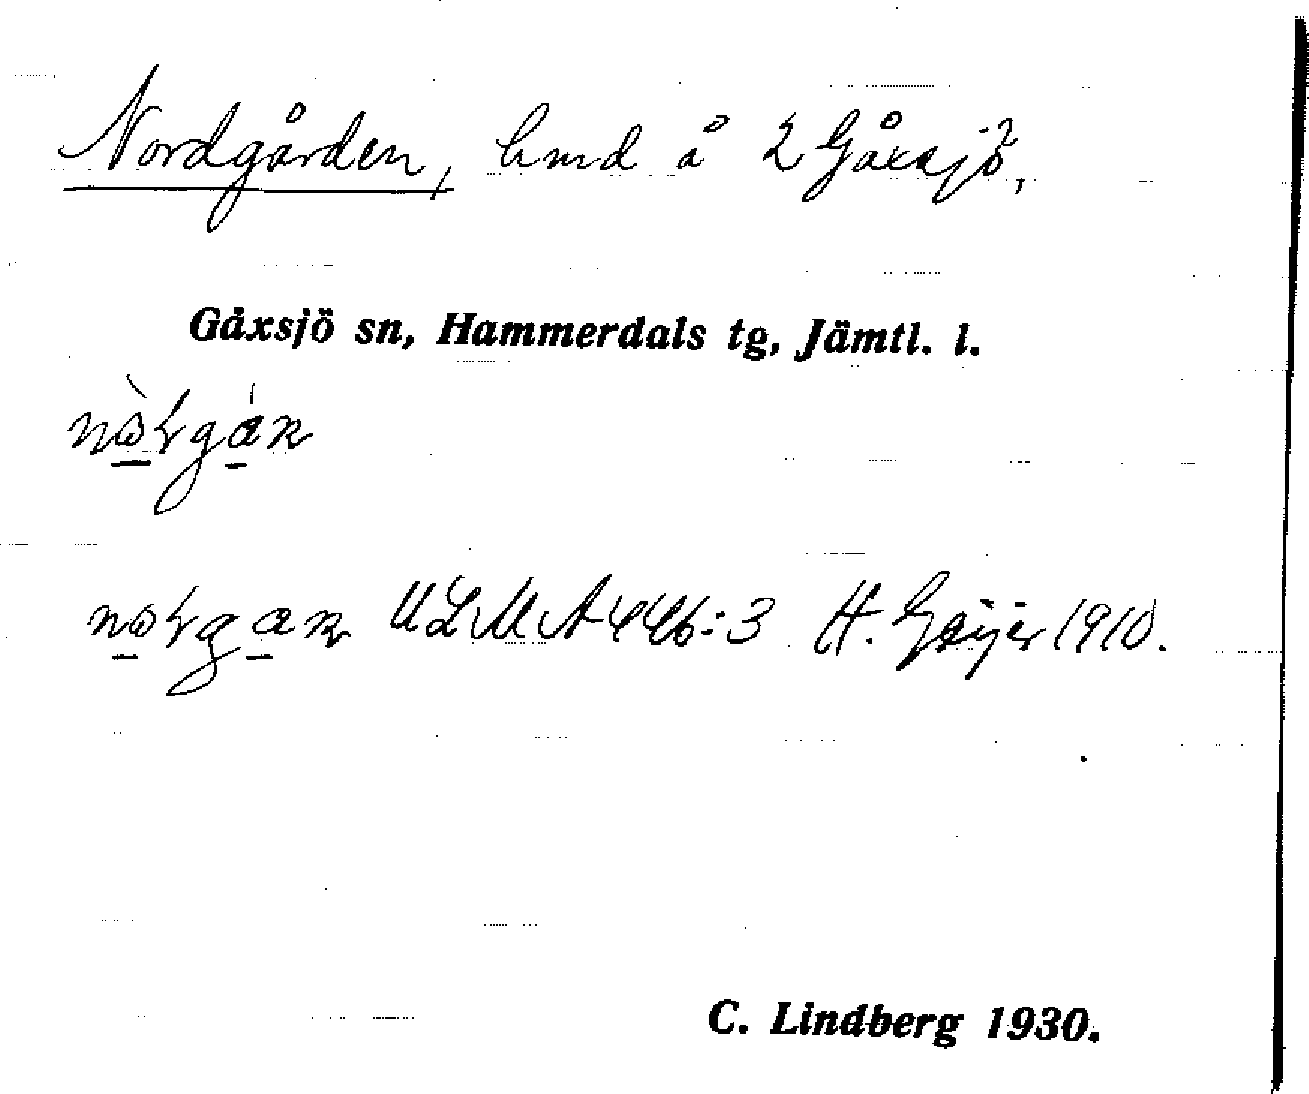 Nordgården, hmd å 2 Gåxsjö,
Gåxsjö sn, Hammerdals tg, Jämtl. l.
ULMA 446:3 H. Geijer 1910.
C. Lindberg 1930.